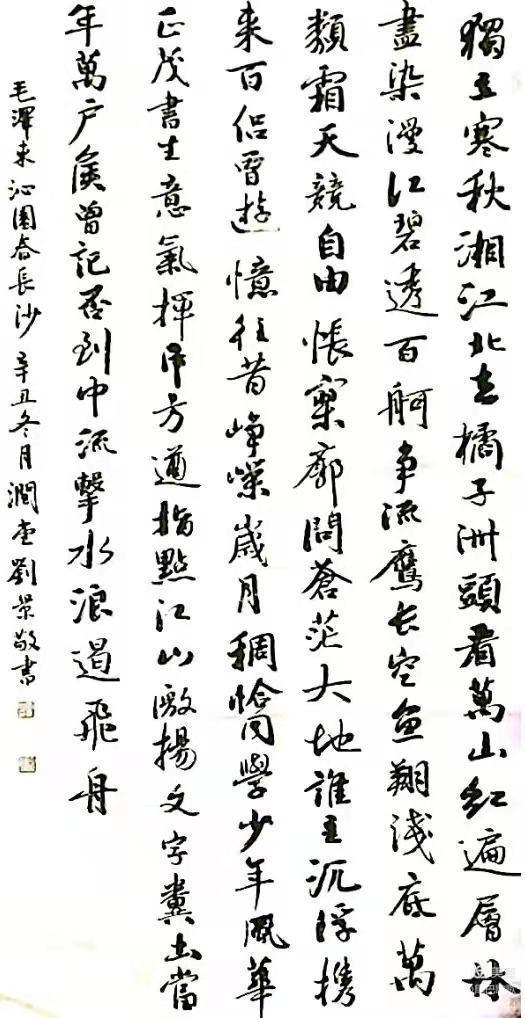 獨立寒秋湘江北去橘子洲頭看萬山紅遍層林
盡染漫江碧透百舸争流鷹长空魚翔淺底萬
類霜天競自由悵寥廓問蒼茫大地誰主沉浮携
来百侣曾遊憶往昔峥嵘歲月稠恰同學少年風華
正茂書生意氣揮斥方遒指點江山激揚文字糞土當
年萬户侯曾記否到中流擊水浪遏飛舟
毛澤東沁園春長沙辛丑冬月潤堂劉景敬書